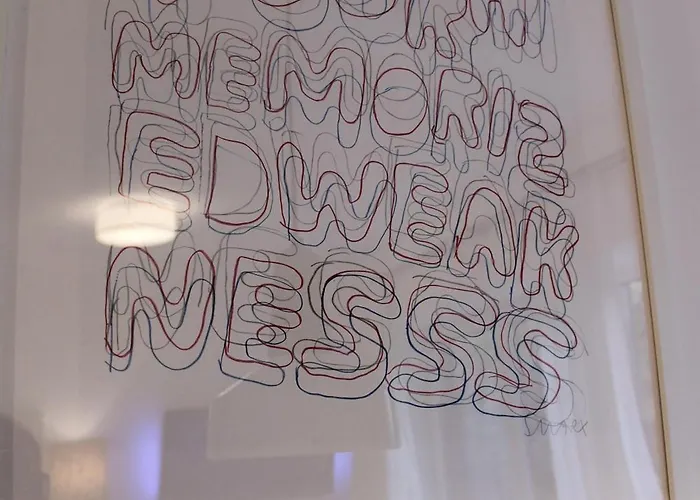 MEMORIZ
EDWEAK
NESSS